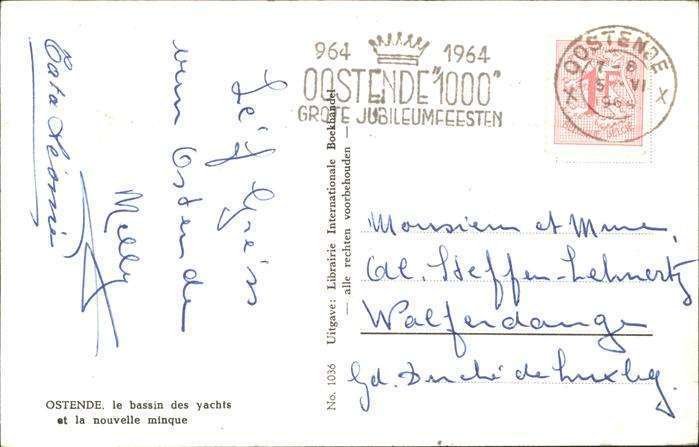 Léif Gréiss
vum Ostende
Milly
Tata Léonie
OSTENDE, le bassin des yachts
et la nouvelle minque
No. 1036 Uitgave: Librairie Internationale Boekhandel
— alle rechten voorbehouden —
964 1964
OOSTENDE "1000"
GROTE JUBILEUMFEESTEN
OOSTENDE
7-8
VI
1F
Monsieur et Mme,
Al. Steffen-Lehnertz
Walferdange
Gd. Duché de Luxbg.